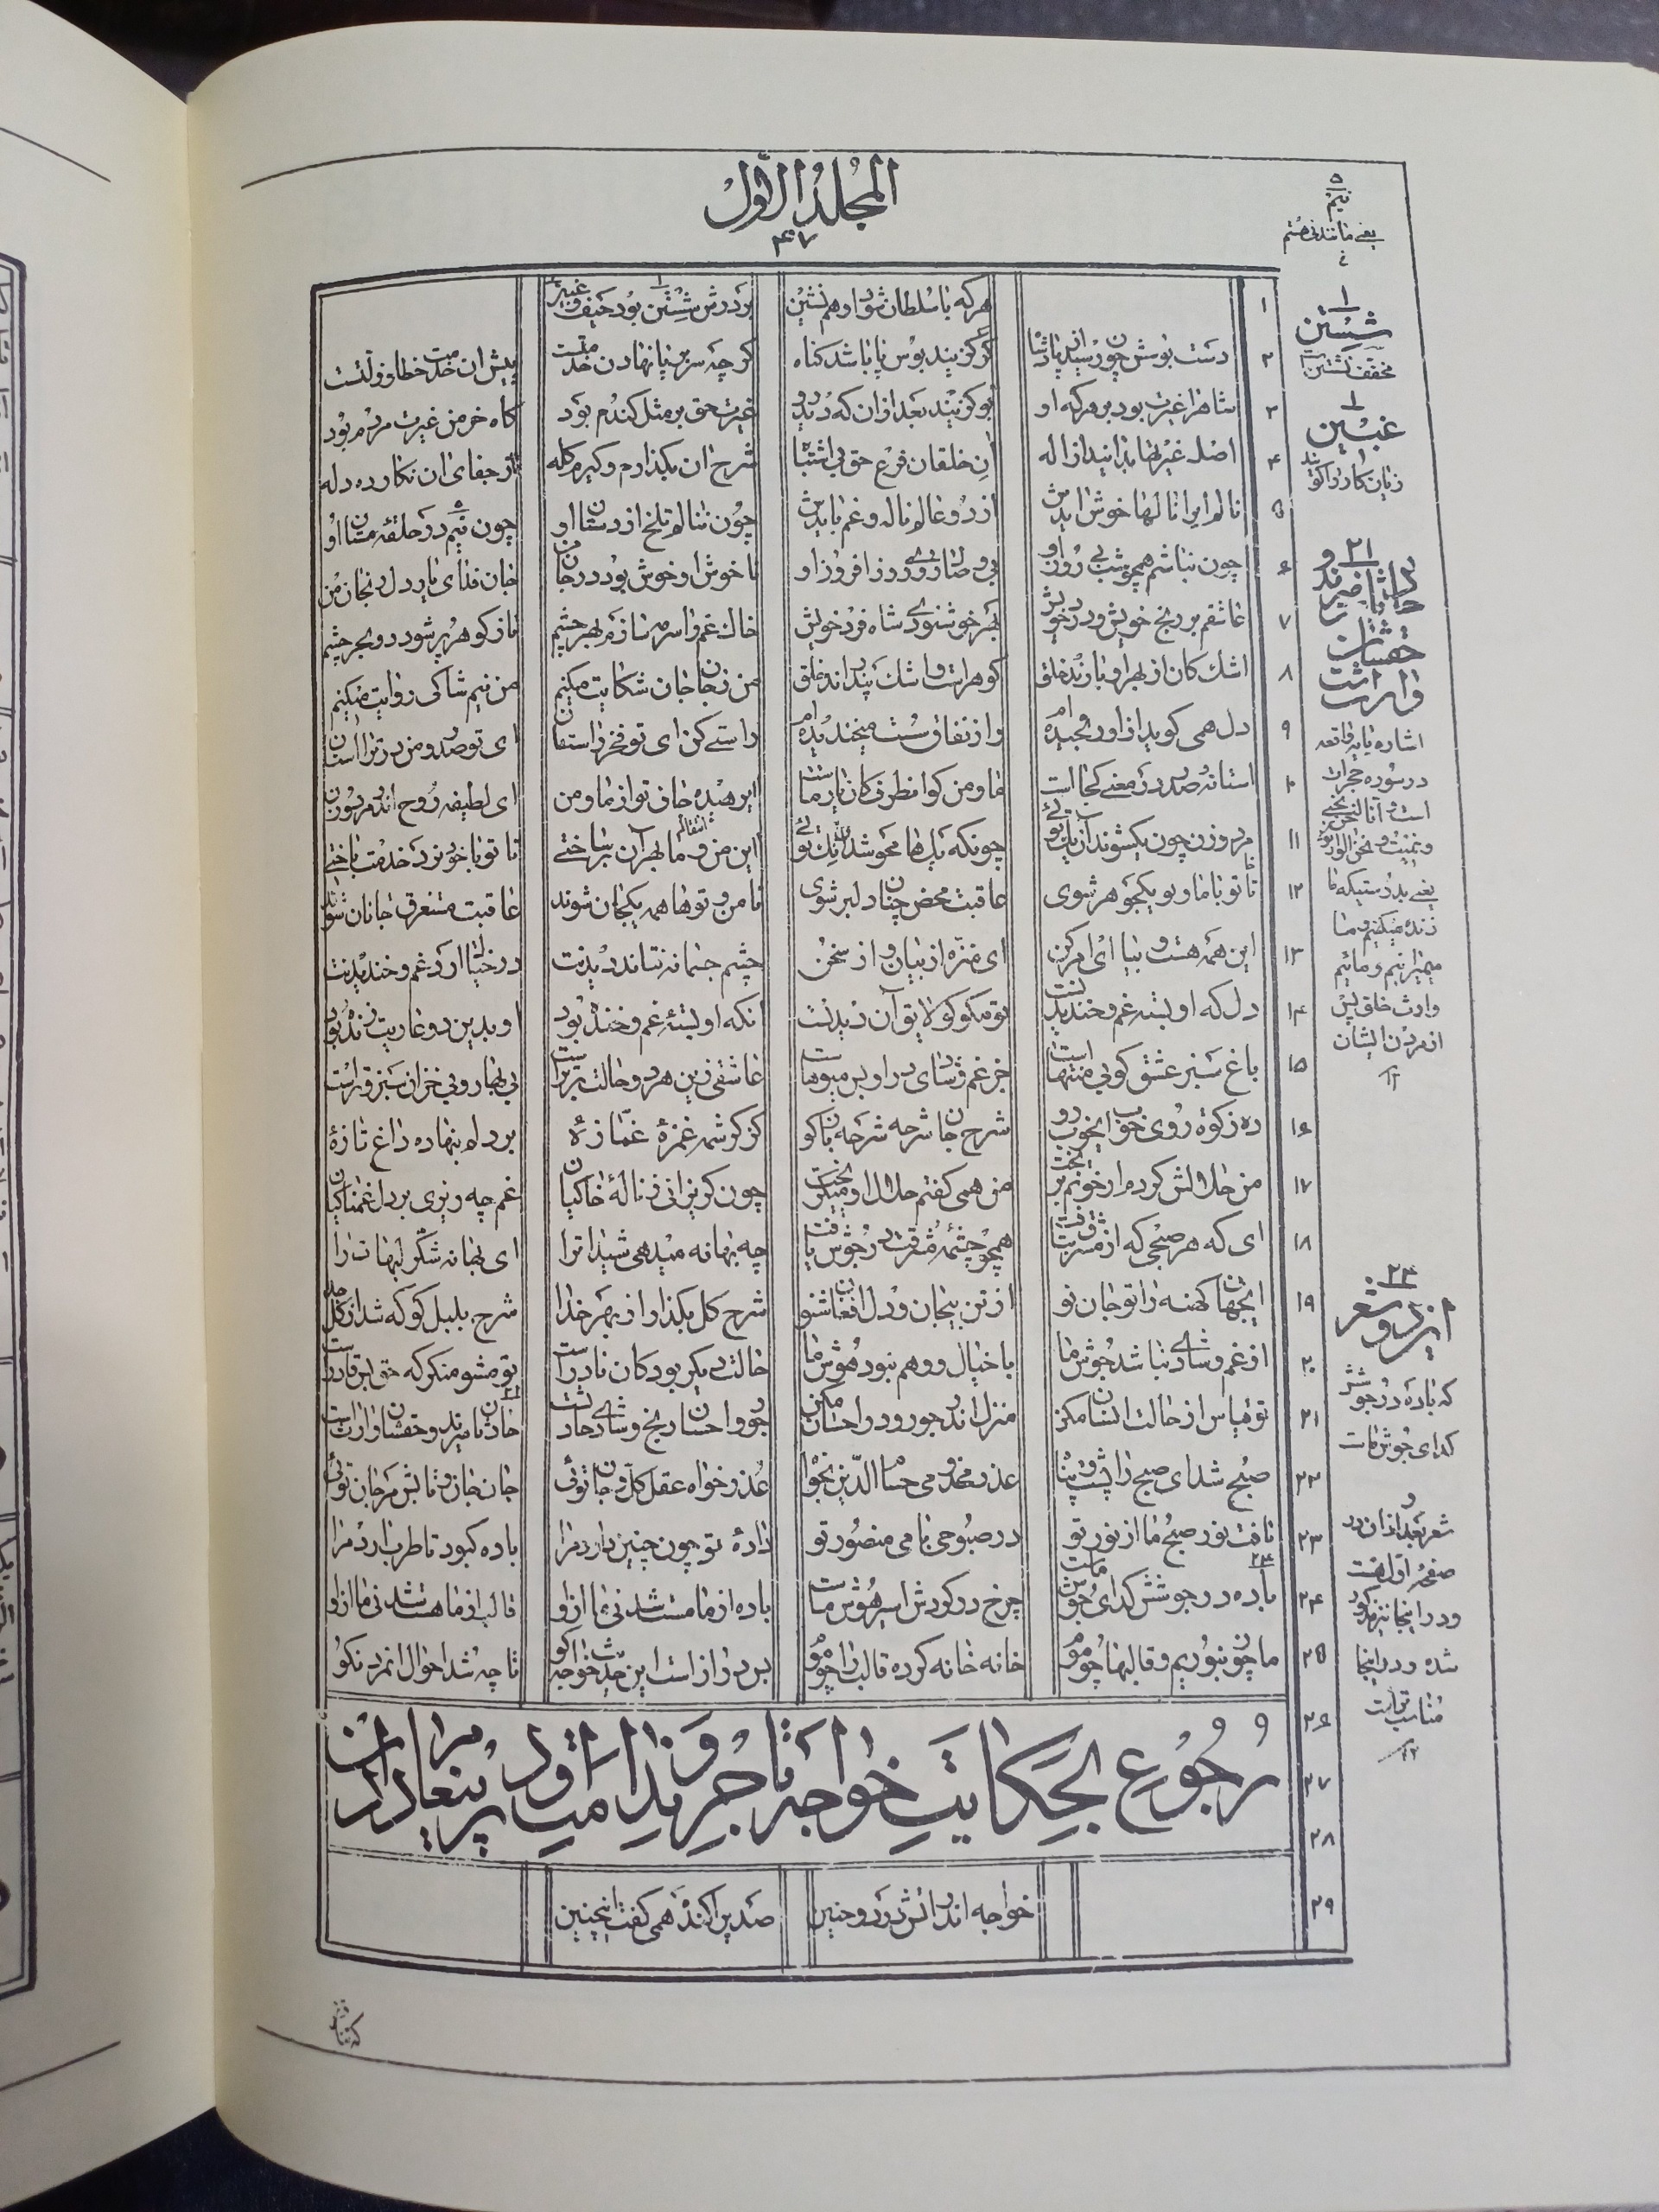 المجلد الاول
۴۷
۵
نیم
یعنی مانند نی هستم
۱
شستن
مخفف نشستن است
۱
غبین
زیان کار را گویند
۲۱
حادثان میرند و
حقشان
وارثست
اشاره بایه واقعه
در سوره حجرات
است و انا لنحن نحیی
و نمیت و نحن الوارثون
یعنی بدرستیکه ما
زنده میکنیم و ما
میمیرانیم و مائیم
وارث خلق پس
از مردن ایشان
۱۲
۲۴
این دو شعر
که باده در جوشش
گدای جوش ماست
و
شعر بعد ازان در
صفحه اول هست
و در اینجا نیز مذکور
شده و در اینجا
مناسب تر است
۱۲
۱ هرکه با سلطان شود او همنشین بر درش شستن بود حیف و غبین
۲ دست بوسش چون رسید از پادشاه گر گزیند بوس پا باشد گناه گرچه سر بر پا نهادن خدمتست پیش ان خدمت خطا و زلتست
۳ شاه را غیرت بود بر هرکه او بو گزیند بعد ازان که دید رو غیرت حق بر مثل گندم بود کاه خرمن غیرت مردم بود
۴ اصل غیرتها بدانید از اله ان خلقان فرع حق بی اشتباه شرح ان بگذارم و گیرم گله از جفای ان نگار ده دله
۵ نالم ایرا نالها خوش ایدش از دو عالم ناله و غم بایدش چون ننالم تلخ از دستان او چون نیم در حلقه مستان او
۶ چون نباشم همچو شب بی روز او بی وصال روی روز افروز او ناخوش او خوش بود در جان من جان فدای یار دل رنجان من
۷ عاشقم بر رنج خویش و درد خویش بهر خوشنودی شاه فرد خویش خاک غم را سرمه سازم بهر چشم تا ز گوهر پر شود دو بحر چشم
۸ اشک کان از بهر او بارند خلق گوهرست و اشک پندارند خلق من ز جان جان شکایت میکنم من نیم شاکی روایت میکنم
۹ دل همی گوید از او رنجیده ام وز نفاق سست میخندیده ام راستی کن ای تو فخر راستان ای تو صدر و من درت را استان
۱۰ استانه و صدر در معنی کجاست ما و من کو انطرف کان یار ماست ای رهیده جان تو از ما و من ای لطیفه روح اندر مرد و زن
۱۱ مرد و زن چون یکشوند آن یک توئی چونکه یکها محو شد انک توئی این من و ما بهر آن برساختی تا تو با خود نرد خدمت باختی
۱۲ تا تو با ما و تو یکجوهر شوی عاقبت محض چنان دلبر شوی تا من و توها همه یکجان شوند عاقبت مستغرق جانان شوند
۱۳ این همه هست و بیا ای امر کن ای منزه از بیان و از سخن چشم جسمانه نتاند دیدنت در خیال ارد غم و خندیدنت
۱۴ دل که او بسته غم و خندیدنست تو مگو کو لایق آن دیدنست انکه او بسته غم و خنده بود او بدین دو عاریت زنده بود
۱۵ باغ سبز عشق کو بی منتهاست جز غم و شادی در او بس میوهاست عاشقی زین هردو حالت برترست بی بهار و بی خزان سبز و ترست
۱۶ ده زکوة روی خوب ایخوب رو شرح جان شرحه شرحه بازگو کز کرشمه غمزه غمازهٔ بر دلم بنهاده داغ تازهٔ
۱۷ من حلالش کردم ار خونم بریخت من همی گفتم حلال او میگریخت چون گریزانی ز نالهٔ خاکیان غم چه ریزی بر دل غمناکیان
۱۸ ای که هر صبحی که از مشرق بتافت همچو چشمه مشرقت در جوش یافت چه بهانه میدهی شیدات را ای بهانه شکر لبهات را
۱۹ ایجهان کهنه را تو جان نو از تن بیجان و دل افغان شنو شرح گل بگذار از بهر خدا شرح بلبل گو که شد از گل جدا
۲۰ از غم و شادی نباشد جوش ما با خیال و وهم نبود هوش ما حالتی دیگر بود کان نادرست تو مشو منکر که حق بس قادرست
۲۱ تو قیاس از حالت انسان مکن منزل اندر جور و در احسان مکن جور و احسان رنج و شادی حادثست حادثان میرند و حقشان وارثست
۲۲ صبح شد ای صبح را پشت و پناه عذر مخدومی حسام الدین بخواه عذر خواه عقل کل و جان توئی جان جان و تابش مرجان توئی
۲۳ تافت نور صبح ما از نور تو در صبوحی با می منصور تو دادهٔ تو چون چنین دارد مرا باده که بود تا طرب ارد مرا
۲۴ باده در جوشش گدای جوش ماست چرخ در گردش اسیر هوش ماست باده از ما مست شد نی ما ازو قالب از ما هست شد نی ما ازو
۲۵ ما چو زنبوریم و قالبها چو موم خانه خانه کرده قالب را چو موم بس درازست این حدیث خواجه گو تا چه شد احوال انمرد نکو
۲۶ ۲۷ ۲۸ رجوع بحکایت خواجه تاجر و ندامت او
۲۹ خواجه اندر اتش و درد و حنین صد پراکنده همی گفت اینچنین